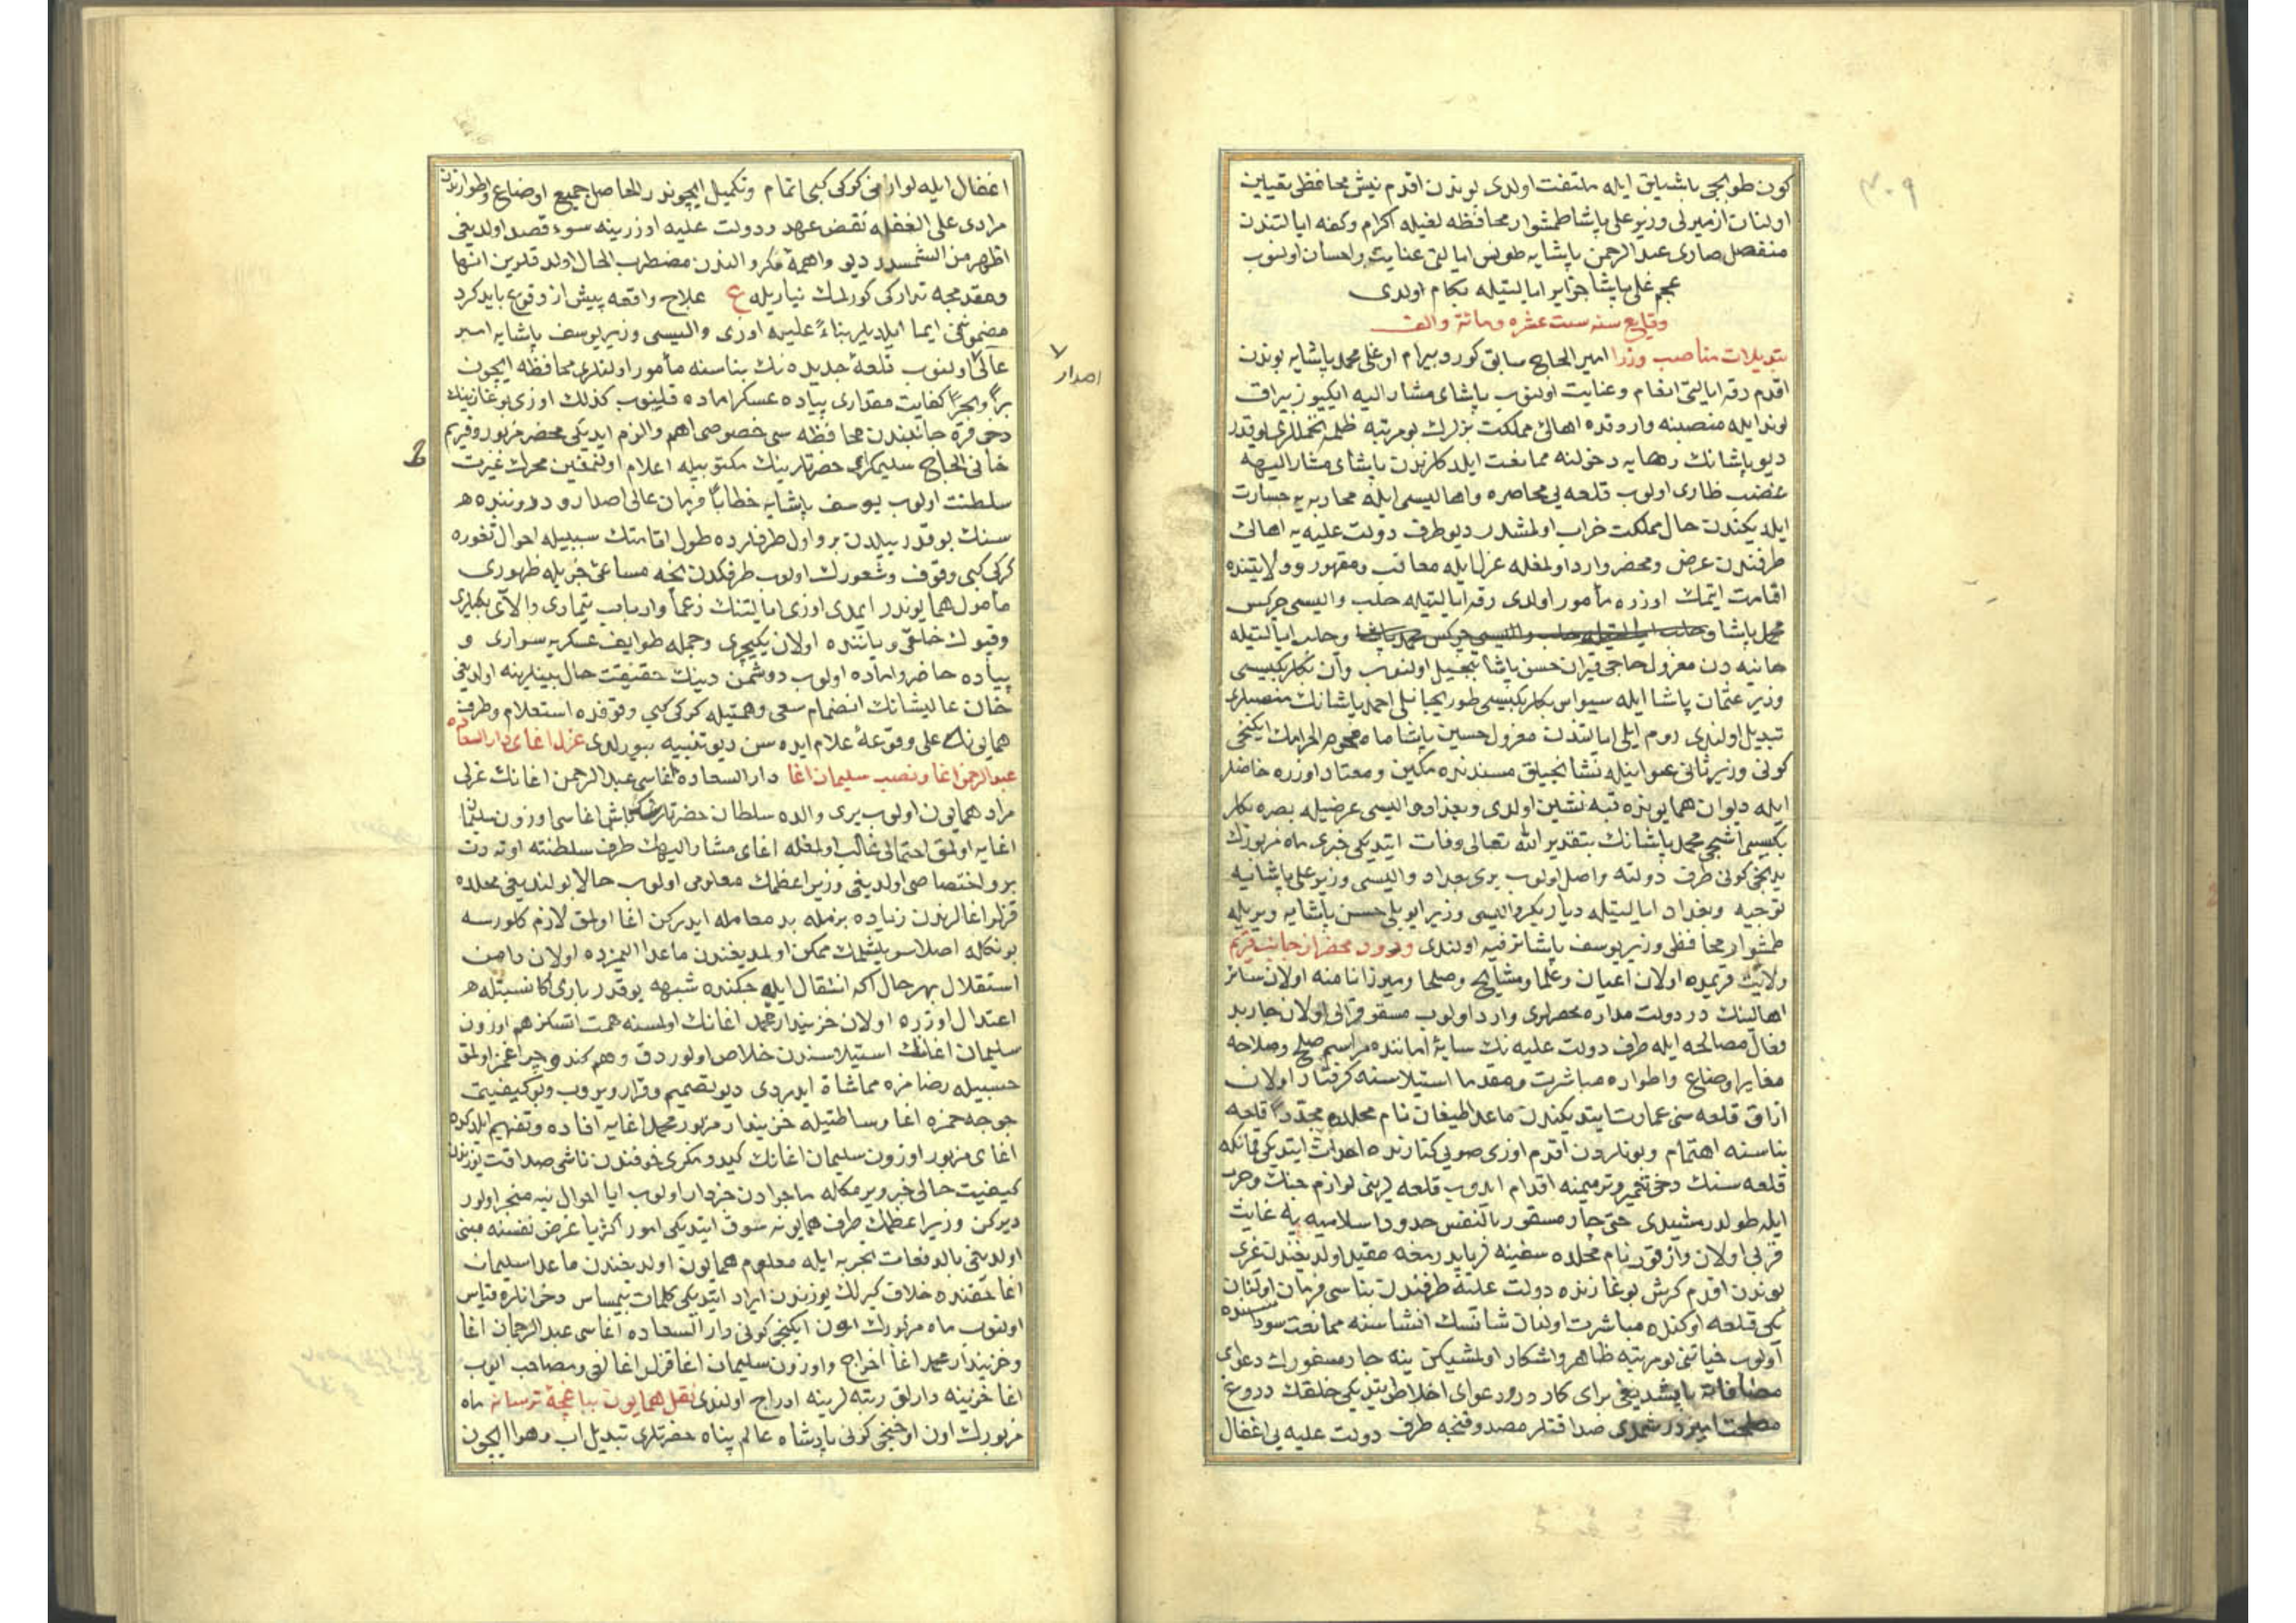 كون طوپجى باشيلق ايله ملتفت اولدى بوندن اقدم نيش محافظى تعيين
اولنان ازميرلى وزير على پاشا طمشوار محافظه لغيله اكرام وكفه ايالتندن
منفصل صارى عبدالرحمن پاشايه طونس ايالتى عنايت واحسان اولنوب
عجم على پاشا جزاير ايالتيله بكام اولدى
وقايع سنه ست عشره ومائة والف
تبديلات مناصب وزرا امير الحاج سابق كورد بيرام اوغلى محمد پاشايه بوندن
اقدم رقه ايالتى انعام وعنايت اولنوب پاشاى مشار اليه ايكيوز بيراق
لوند ايله منصبنه واردقده اهالئ مملكت بزلرك بو مرتبه ظلمه تحمللرى يوقدر
ديو پاشانك رهايه دخولنه ممانعت ايلدكلرندن پاشاى مشار اليهه
غضب طارى اولوب قلعه يى محاصره واهاليسى ايله محاربه يه جسارت
ايلديكندن حال مملكت خراب اولمشدر ديو طرف دولت عليه يه اهالى
طرفندن عرض ومحضر وارد اولمغله عزل ايله معاقب ومقهور و ولايتنده
اقامت ايتمك اوزره مأمور اولدى رقه ايالتيله حلب واليسى چركس
محمد پاشا وحلب ايالتيله حلب واليسى چركس محمد پاشا وحلب ايالتيله
خانيه دن معزول حاجى قيران حسن پاشا تبجيل اولنوب وان بكلربكيسى
وزير عثمان پاشا ايله سيواس بكلربكيسى طوريجانلى احمد پاشانك منصبلرى
تبديل اولندى روم ايلى ايالتندن معزول حسين پاشا ماه محرم الحرامك ايكنجى
كونى وزير ثانى عنوانيله نشانجيلق مسندنده مكين ومعتاد اوزره خاضلر
ايله ديوان همايونزه قبه نشين اولدى وبغداد واليسى عرضيله بصره بكلر
بكيسى اشجى محمد پاشانك بتقدير الله تعالى وفات ايتديكى خبرى ماه مزبورك
يدنجى كونى طرف دولته واصل اولوب يرى بغداد واليسى وزير على پاشايه
توجيه وبغداد ايالتيله دياربكر واليسى وزير ايوبلى حسن پاشايه ويريله
طمشوار محافظى وزير يوسف پاشا ترفيه اولندى ورود محضر از جانب قريم
ولايت قريمده اولان اعيان وعلما ومشايخ وصلحا وميرزا نامنه اولان سائر
اهالينك در دولت مداره محضرلرى وارد اولوب مسقو قرالى اولان چار بد
فعال مصالحه ايله طرف دولت عليه نك سايۀ اماننده مراسم صلح وصلاحه
مغاير اوضاع واطواره مباشرت ومقدما استيلاسنه كرفتار اولان
ازاق قلعه سنى عمارت ايتديكندن ماعدا طيغان نام محلده مجدداً قلعه
بناسنه اهتمام وبونلردن اقدم اوزى صويى كنارنده احداث ايتديكى قمانكه
قلعه سنك دخى تعمير وترميمنه اقدام ايدوب قلعه لرينى لوازم جنك وحرب
ايله طولدرمشيدى حتى چار مسقور بالنفس حدود اسلاميه يه غايت
قربى اولان وارقون نام محلده سفينه لر ياپدرمغه مقيد اولديغندن غيرى
بوندن اقدم كرش بوغازنده دولت عليه طرفندن بناسى فرمان اولنان
يكى قلعه اوكنده مباشرت اولنان شانسك انشاسنه ممانعت سوداسنده
اولوب خياتنى بو مرتبه ظاهر واشكار اولمشيكن ينه چار مسفورك دعواى
مصافات ياپشديغى براى كار
مصلحت اميزدر شمدى صداقتلر مصدوقنجه طرف دولت عليه يى اغفال
اغفال ايله لوازمنى كوكى كبى اتمام وتكميل ايچوندر الحاصل جميع اوضاع واطوارندن
مرادى على الغفله نقض عهد ودولت عليه اوزرينه سوء قصد اولديغى
اظهر من الشمسدر ديو واهمۀ مكر والندن مضطرب الحال اولدقلرين انها
ومقدمجه تداركى كورلمك نيازيله ع علاج واقعه پيش از وقوع بايد كرد
مضموننى ايما ايلديلر بناءً عليه اوزى واليسى وزير يوسف پاشايه امير
عالى اولنوب قلعۀ جديده نك بناسنه مأمور اولنلرى محافظه ايچون
براً وبحراً كفايت مقدارى پياده عسكر اماده قلينوب كذلك اوزى بوغازينك
دخى قره جانبندن محافظه سى خصوصى اهم والزم ايديكى محضر مزبور وقريم
خانى الحاج سليم كراى حضرتلرينك مكتوبيله اعلام اولنمغين محرك غيرت
سلطنت اولوب يوسف پاشايه خطاباً فرمان عالى اصدار و درونندههـ
سنك بو قدر ييلدن برو اول طرفلرده طول اقامتك سببيله احوال ثغوره
كركى كبى وقوف وشعورك اولوب طرفكدن نجه مساعئ جزيله ظهورى
مأمول همايوندر ايمدى اوزى ايالتنك زعما وارباب تيمارى والاى بكلرى
وقپوك خلقى وياننده اولان يكيچرى وجمله طوايف عسكريه سوارى و
پياده حاضر واماده اولوب دوشمن دينك حقيقت حال بينلرينه اولديغى
خان عاليشانك انضمام سعى وهمتيله كركى كبى وقوفده استعلام وطرف
همايونه على وقوعه اعلام ايده سن ديو تنبيه بيورلدى عزل اغاى دار السعاده
عبدالرحمن اغا ونصب سليمان اغا دار السعاده اغاسى عبدالرحمن اغانك عزلى
مراد همايون اولوب يرى والده سلطان حضرتلرينك باش اغاسى اوزون سليمان
اغايه اولمق احتمالى غالب اولمغله اغاى مشار اليهك طرف سلطنته اوته دن
برو اختصاصى اولديغى وزير اعظمك معلومى اولوب حالا بولنديغى محلده
قزلر اغالرندن زياده بزمله بد معامله ايدركن اغا اولمق لازم كلورسه
بونكله اصلا سويلشمك ممكن اولمديغندن ماعدا المزده اولان دامن
استقلال بهر حال اكا انتقال ايله جكنده شبهه يوقدر بارى اكا نسبتلههـ
اعتدال اوزره اولان خزينه دار محمد اغانك اولمسنه همت ايتسكز هم اوزون
سليمان اغانك استيلاسندن خلاص اولوردق وهم كندو چراغمز اولمق
حسبيله رضامزه مماشاة ايدردى ديو تصميم وقرار ويروب وبو كيفيت
جوجه حمزه اغا وساطتيله خزينه دار مزبور محمد اغايه افاده وتفهيم ايلدكده
اغاى مزبور اوزون سليمان اغانك كيد ومكرى خوفندن ناشى صداقت يوزندن
كيفيت حالى خبر ويرمكله ماجرادن خبردار اولوب ايا احوال نيه منجر اولور
ديركن وزير اعظمك طرف همايونه سوق ايتديكى امور اكثريا غرض نفسنه مبنى
اولديغى بالدفعات تجربه ايله معلوم همايون اولديغندن ماعدا سليمان
اغا حقنده خلاف كيرلك يوزندن ايراد ايتديكى كلمات بيمساس دخى انلره قياس
اولنوب ماه مزبورك اون ايكنجى كونى دار السعاده اغاسى عبدالرحمان اغا
وخزينه دار محمد اغا اخراج واوزون سليمان اغا قزلر اغالغى ومصاحب ايوب
اغا خزينه دارلق رتبه لرينه ادراج اولندى نقل همايون بباغچۀ ترسانه ماه
مزبورك اون اوچنجى كونى پادشاه عالم پناه حضرتلرى تبديل اب وهوا ايچون
اصدار